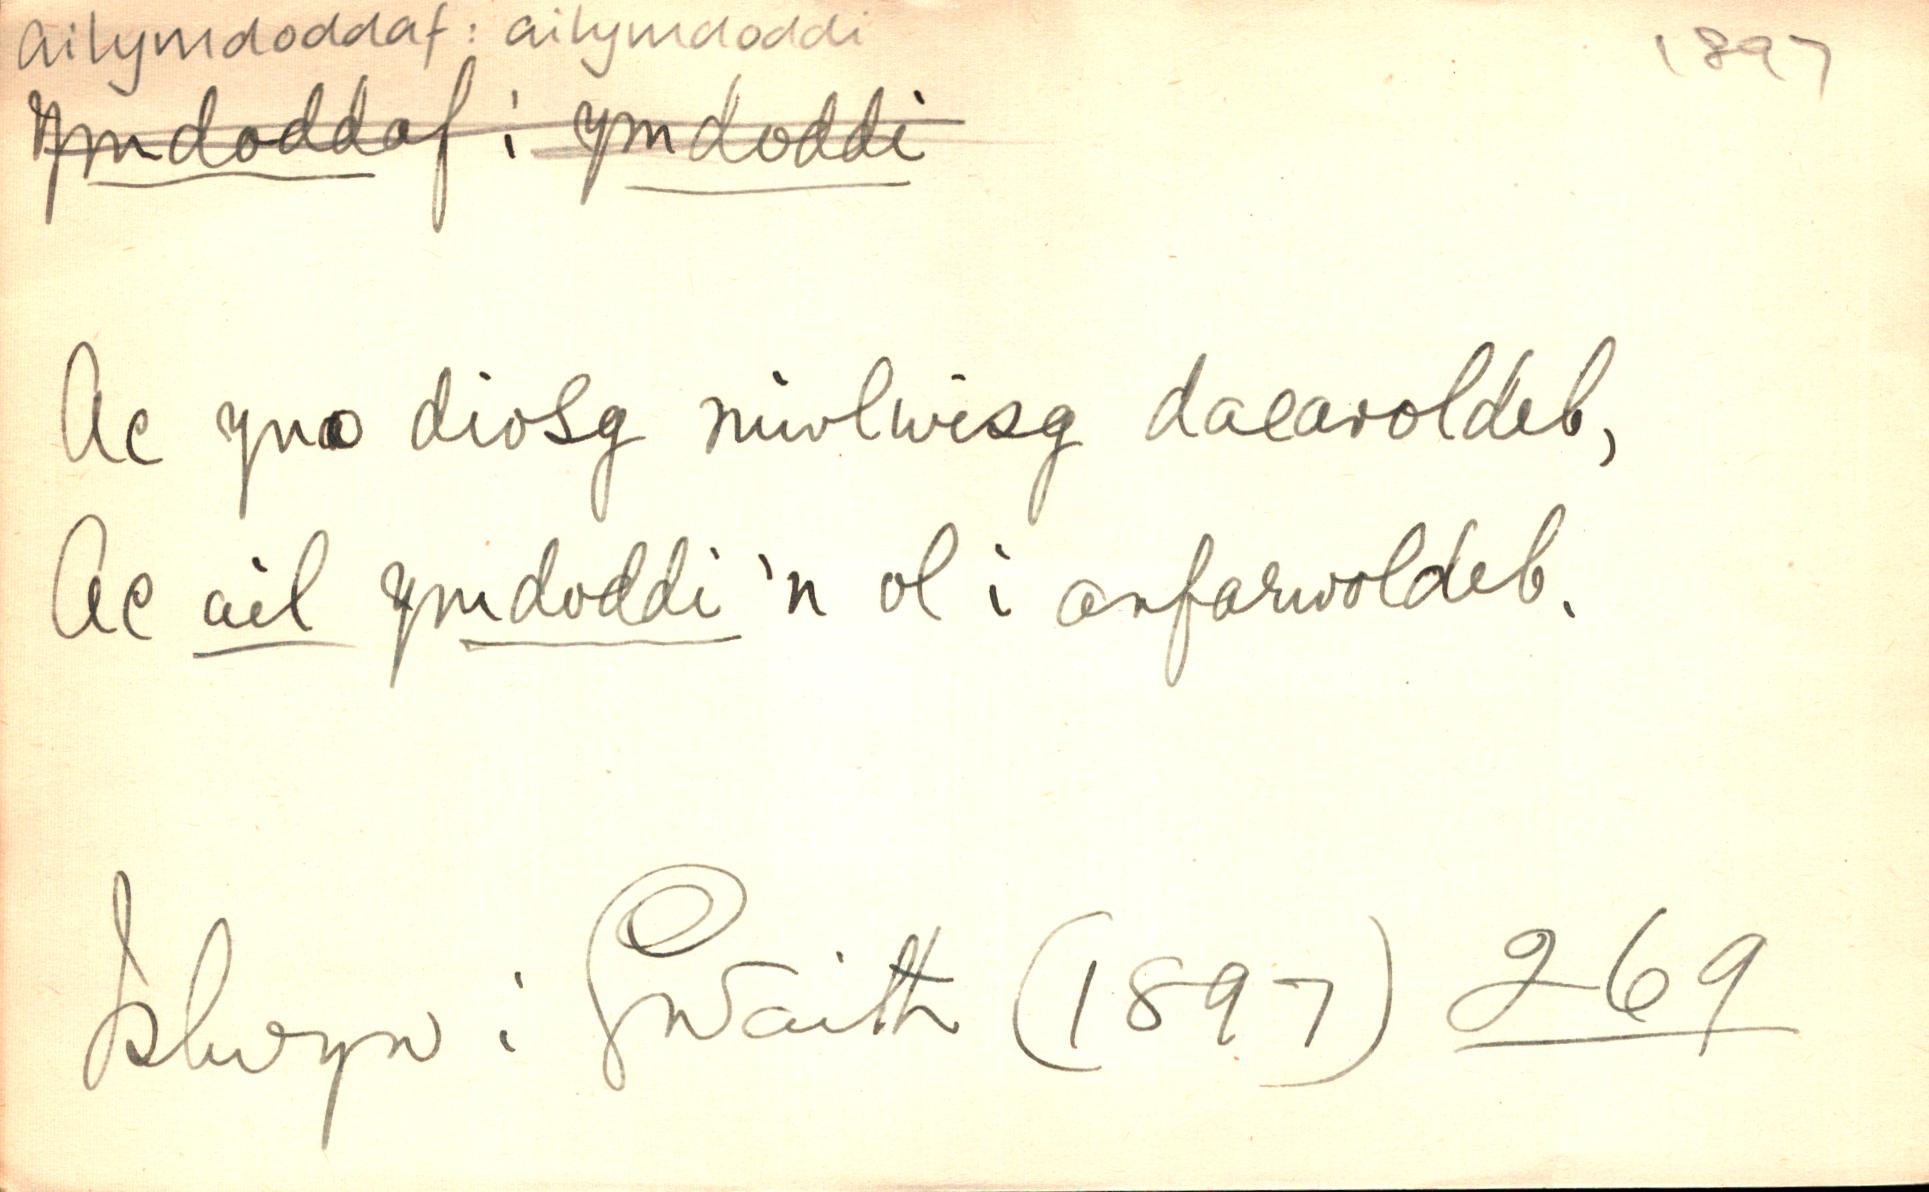 ailymdoddaf: ailymdoddi
1897
ymdoddaf: ymdoddi
Ac yno diosg niwlwisg daearoldeb,
Ac ail ymdoddi'n ol i anfarwoldeb.
Islwyn: Gwaith (1897) 269